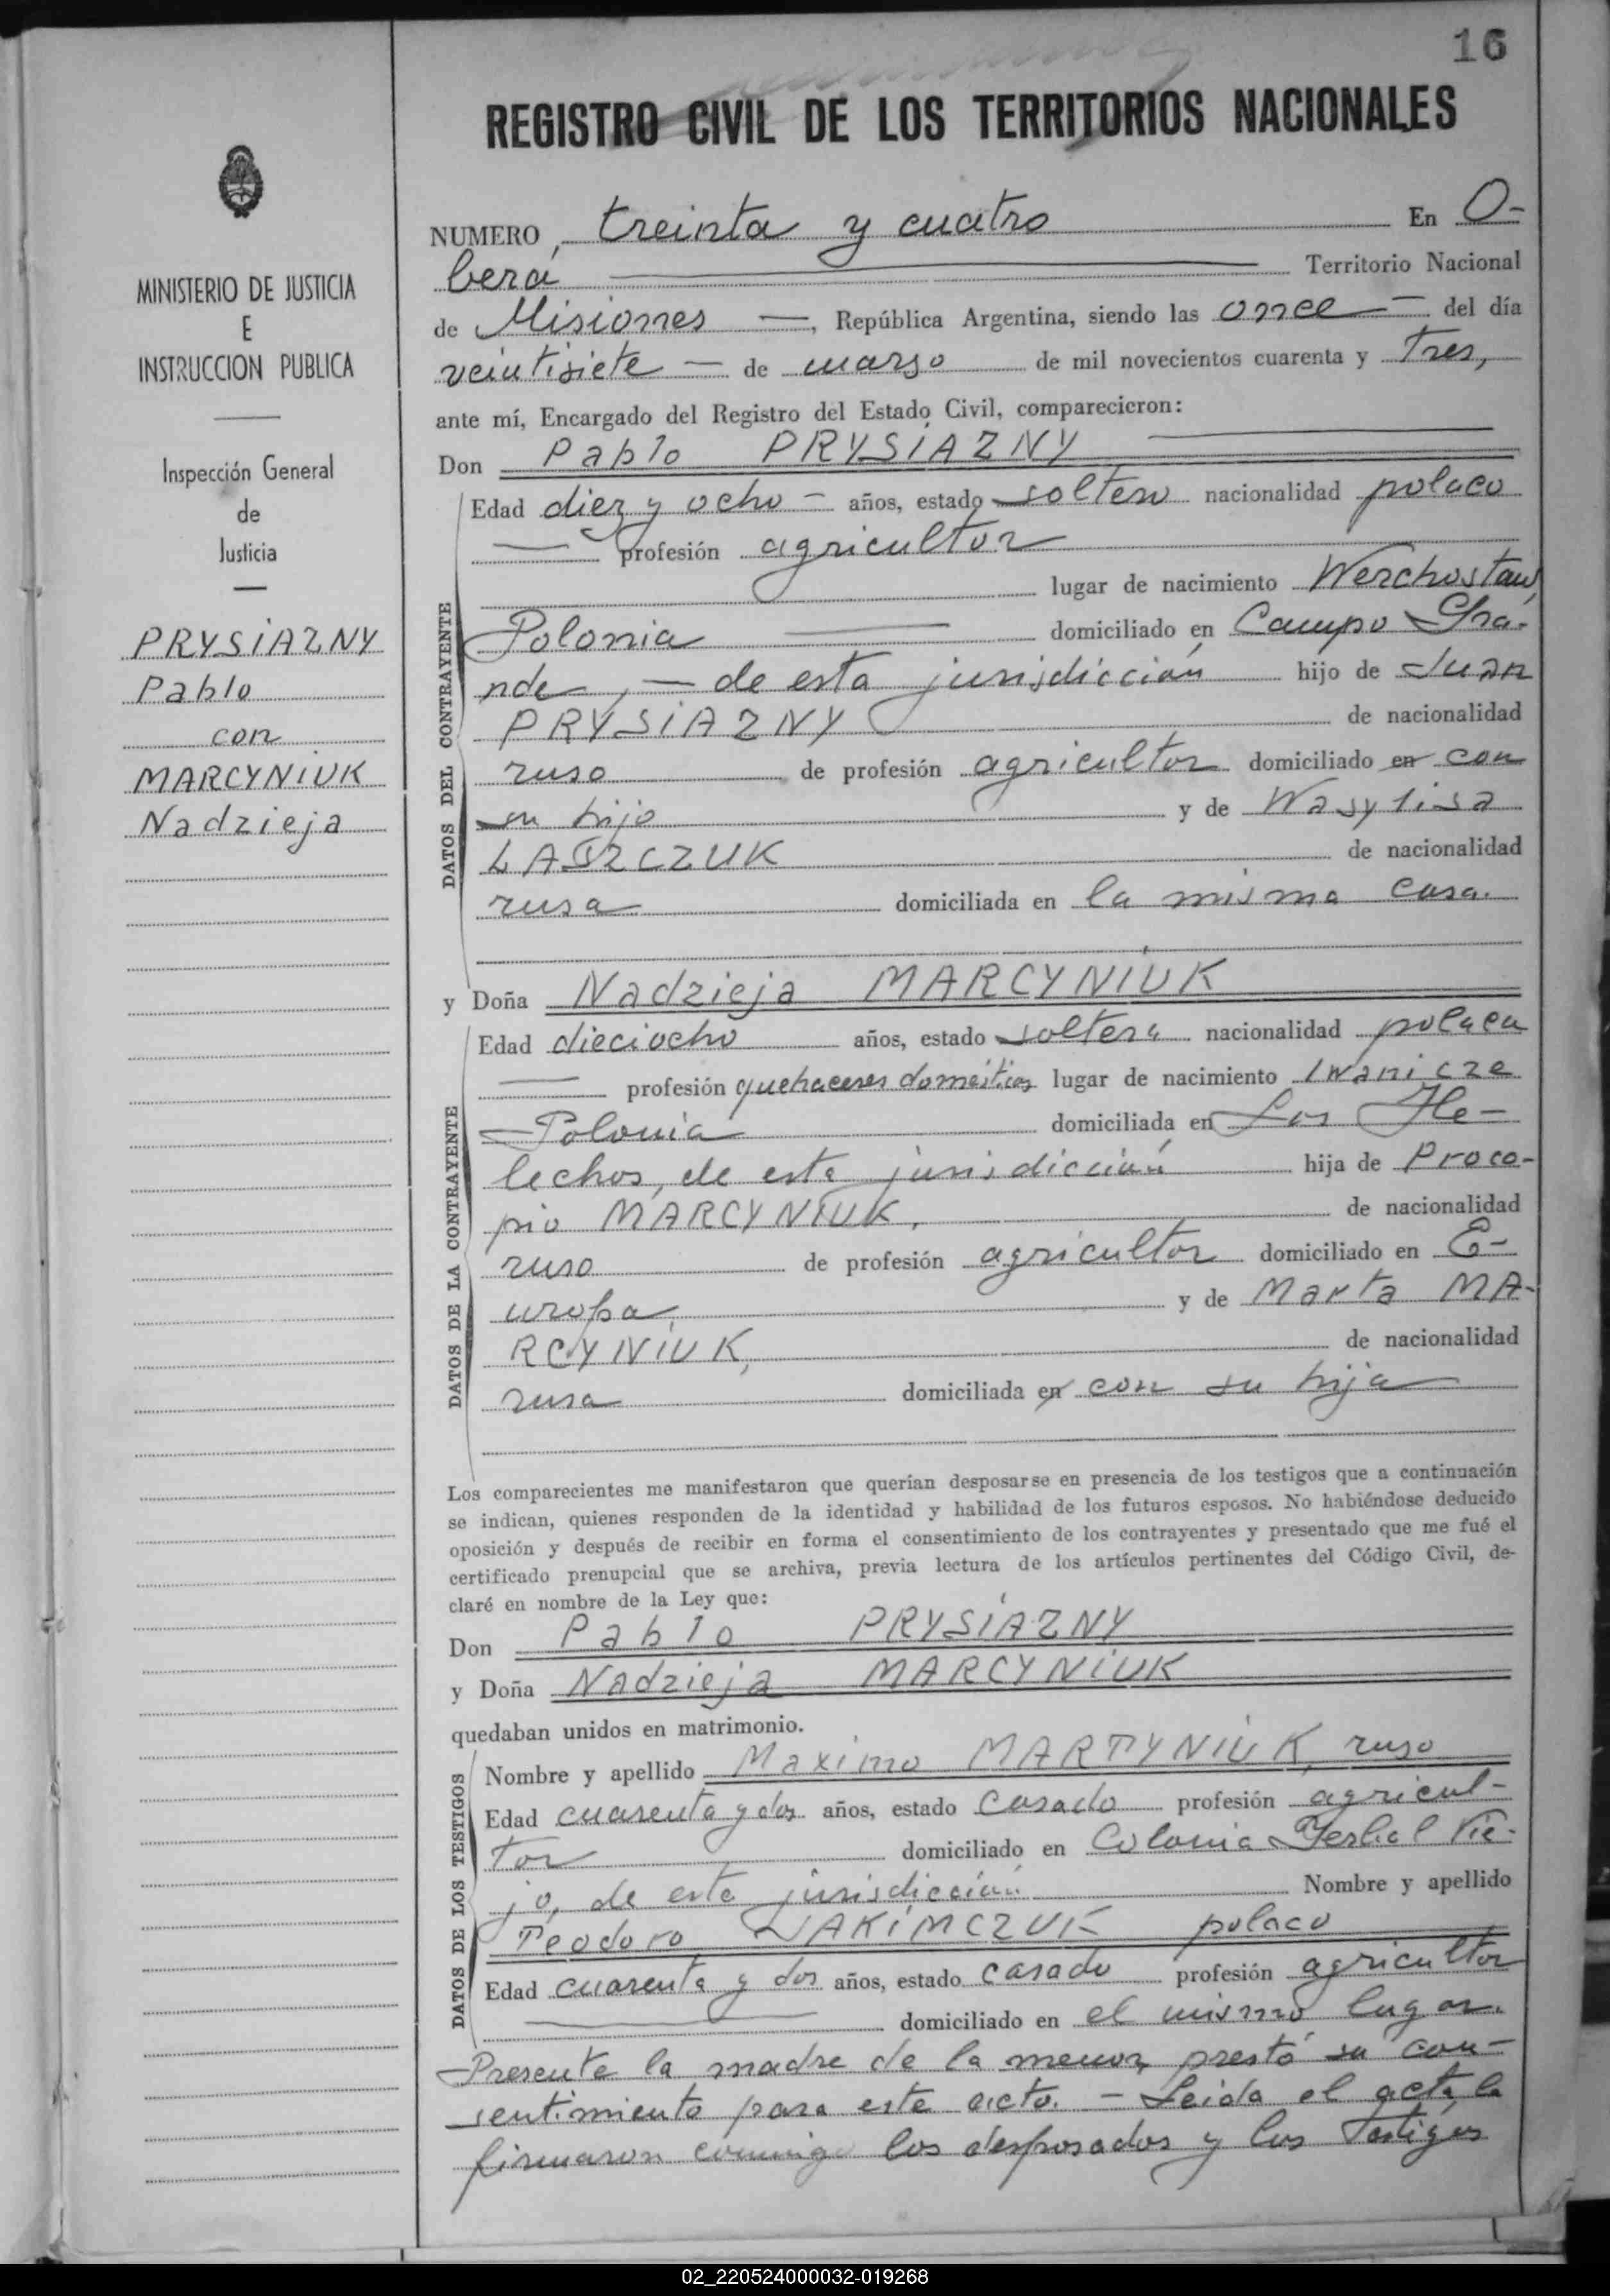 16
REGISTRO CIVIL DE LOS TERRITORIOS NACIONALES
MINISTERIO DE JUSTICIA
E
INSTRUCCION PUBLICA
Inspección General
de
Justicia
PRYSIAZNY
Pablo
con
MARCYNIUK
Nadzieja
NUMERO, treinta y cuatro En O-
berá Territorio Nacional
de Misiones —, República Argentina, siendo las once — del día
veintisiete — de marzo de mil novecientos cuarenta y Tres,
ante mí, Encargado del Registro del Estado Civil, comparecieron:
Don Pablo PRYSIAZNY
Edad diez y ocho — años, estado soltero nacionalidad polaco
— profesión agricultor
lugar de nacimiento Werchostaw,
Polonia — domiciliado en Campo Gra-
nde, — de esta jurisdicción hijo de Juan
PRYSIAZNY de nacionalidad
ruso de profesión agricultor domiciliado en con
su hijo y de Wasylisa
de nacionalidad
rusa domiciliada en la misma casa.
y Doña Nadzieja MARCYNIUK
Edad dieciocho años, estado soltera nacionalidad polaca
— profesión quehaceres domésticos lugar de nacimiento Iwanicze
Polonia domiciliada en Los He-
lechos, de esta jurisdicción hija de Proco-
pio MARCYNIUK, de nacionalidad
ruso de profesión agricultor domiciliado en E-
uropa, y de Marta MA-
RCYNIUK, de nacionalidad
rusa domiciliada en con su hija
DATOS DEL CONTRAYENTE
DATOS DE LA CONTRAYENTE
Los comparecientes me manifestaron que querían desposarse en presencia de los testigos que a continuación
se indican, quienes responden de la identidad y habilidad de los futuros esposos. No habiéndose deducido
oposición y después de recibir en forma el consentimiento de los contrayentes y presentado que me fué el
certificado prenupcial que se archiva, previa lectura de los artículos pertinentes del Código Civil, de-
claré en nombre de la Ley que:
Don Pablo PRYSIAZNY
y Doña Nadzieja MARCYNIUK
quedaban unidos en matrimonio.
Nombre y apellido Maximo MARTYNIUK, ruso
Edad cuarenta y dos años, estado casado profesión agricul-
tor domiciliado en Colonia Yerbal Vie-
jo, de esta jurisdicción Nombre y apellido
Teodoro JAKIMCZUK polaco
Edad cuarenta y dos años, estado casado profesión agricultor
— domiciliado en el mismo lugar.
DATOS DE LOS TESTIGOS
Presente la madre de la menor, prestó su con-
sentimiento para este acto. — Leida el acta, la
firmaron conmigo los desposados y los testigos
02_220524000032-019268